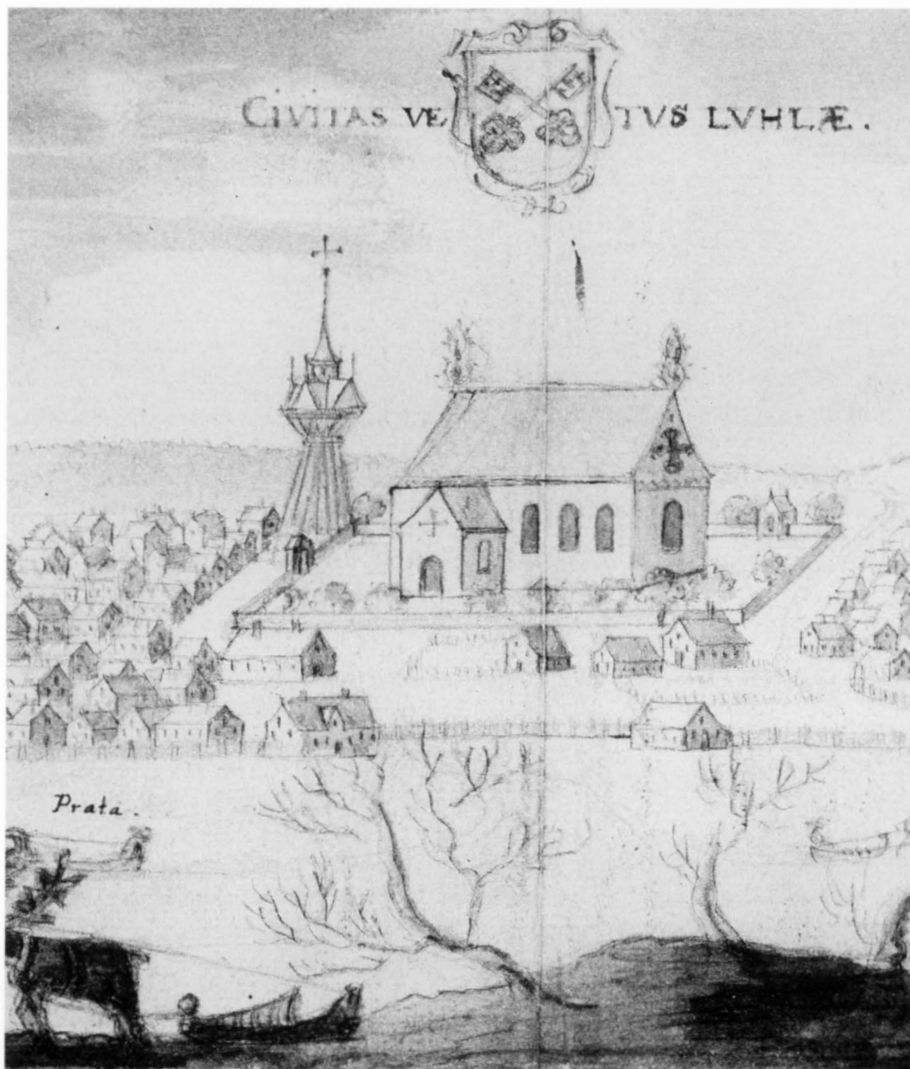 CIVITAS VETVS LVHLÆ.
Prata.